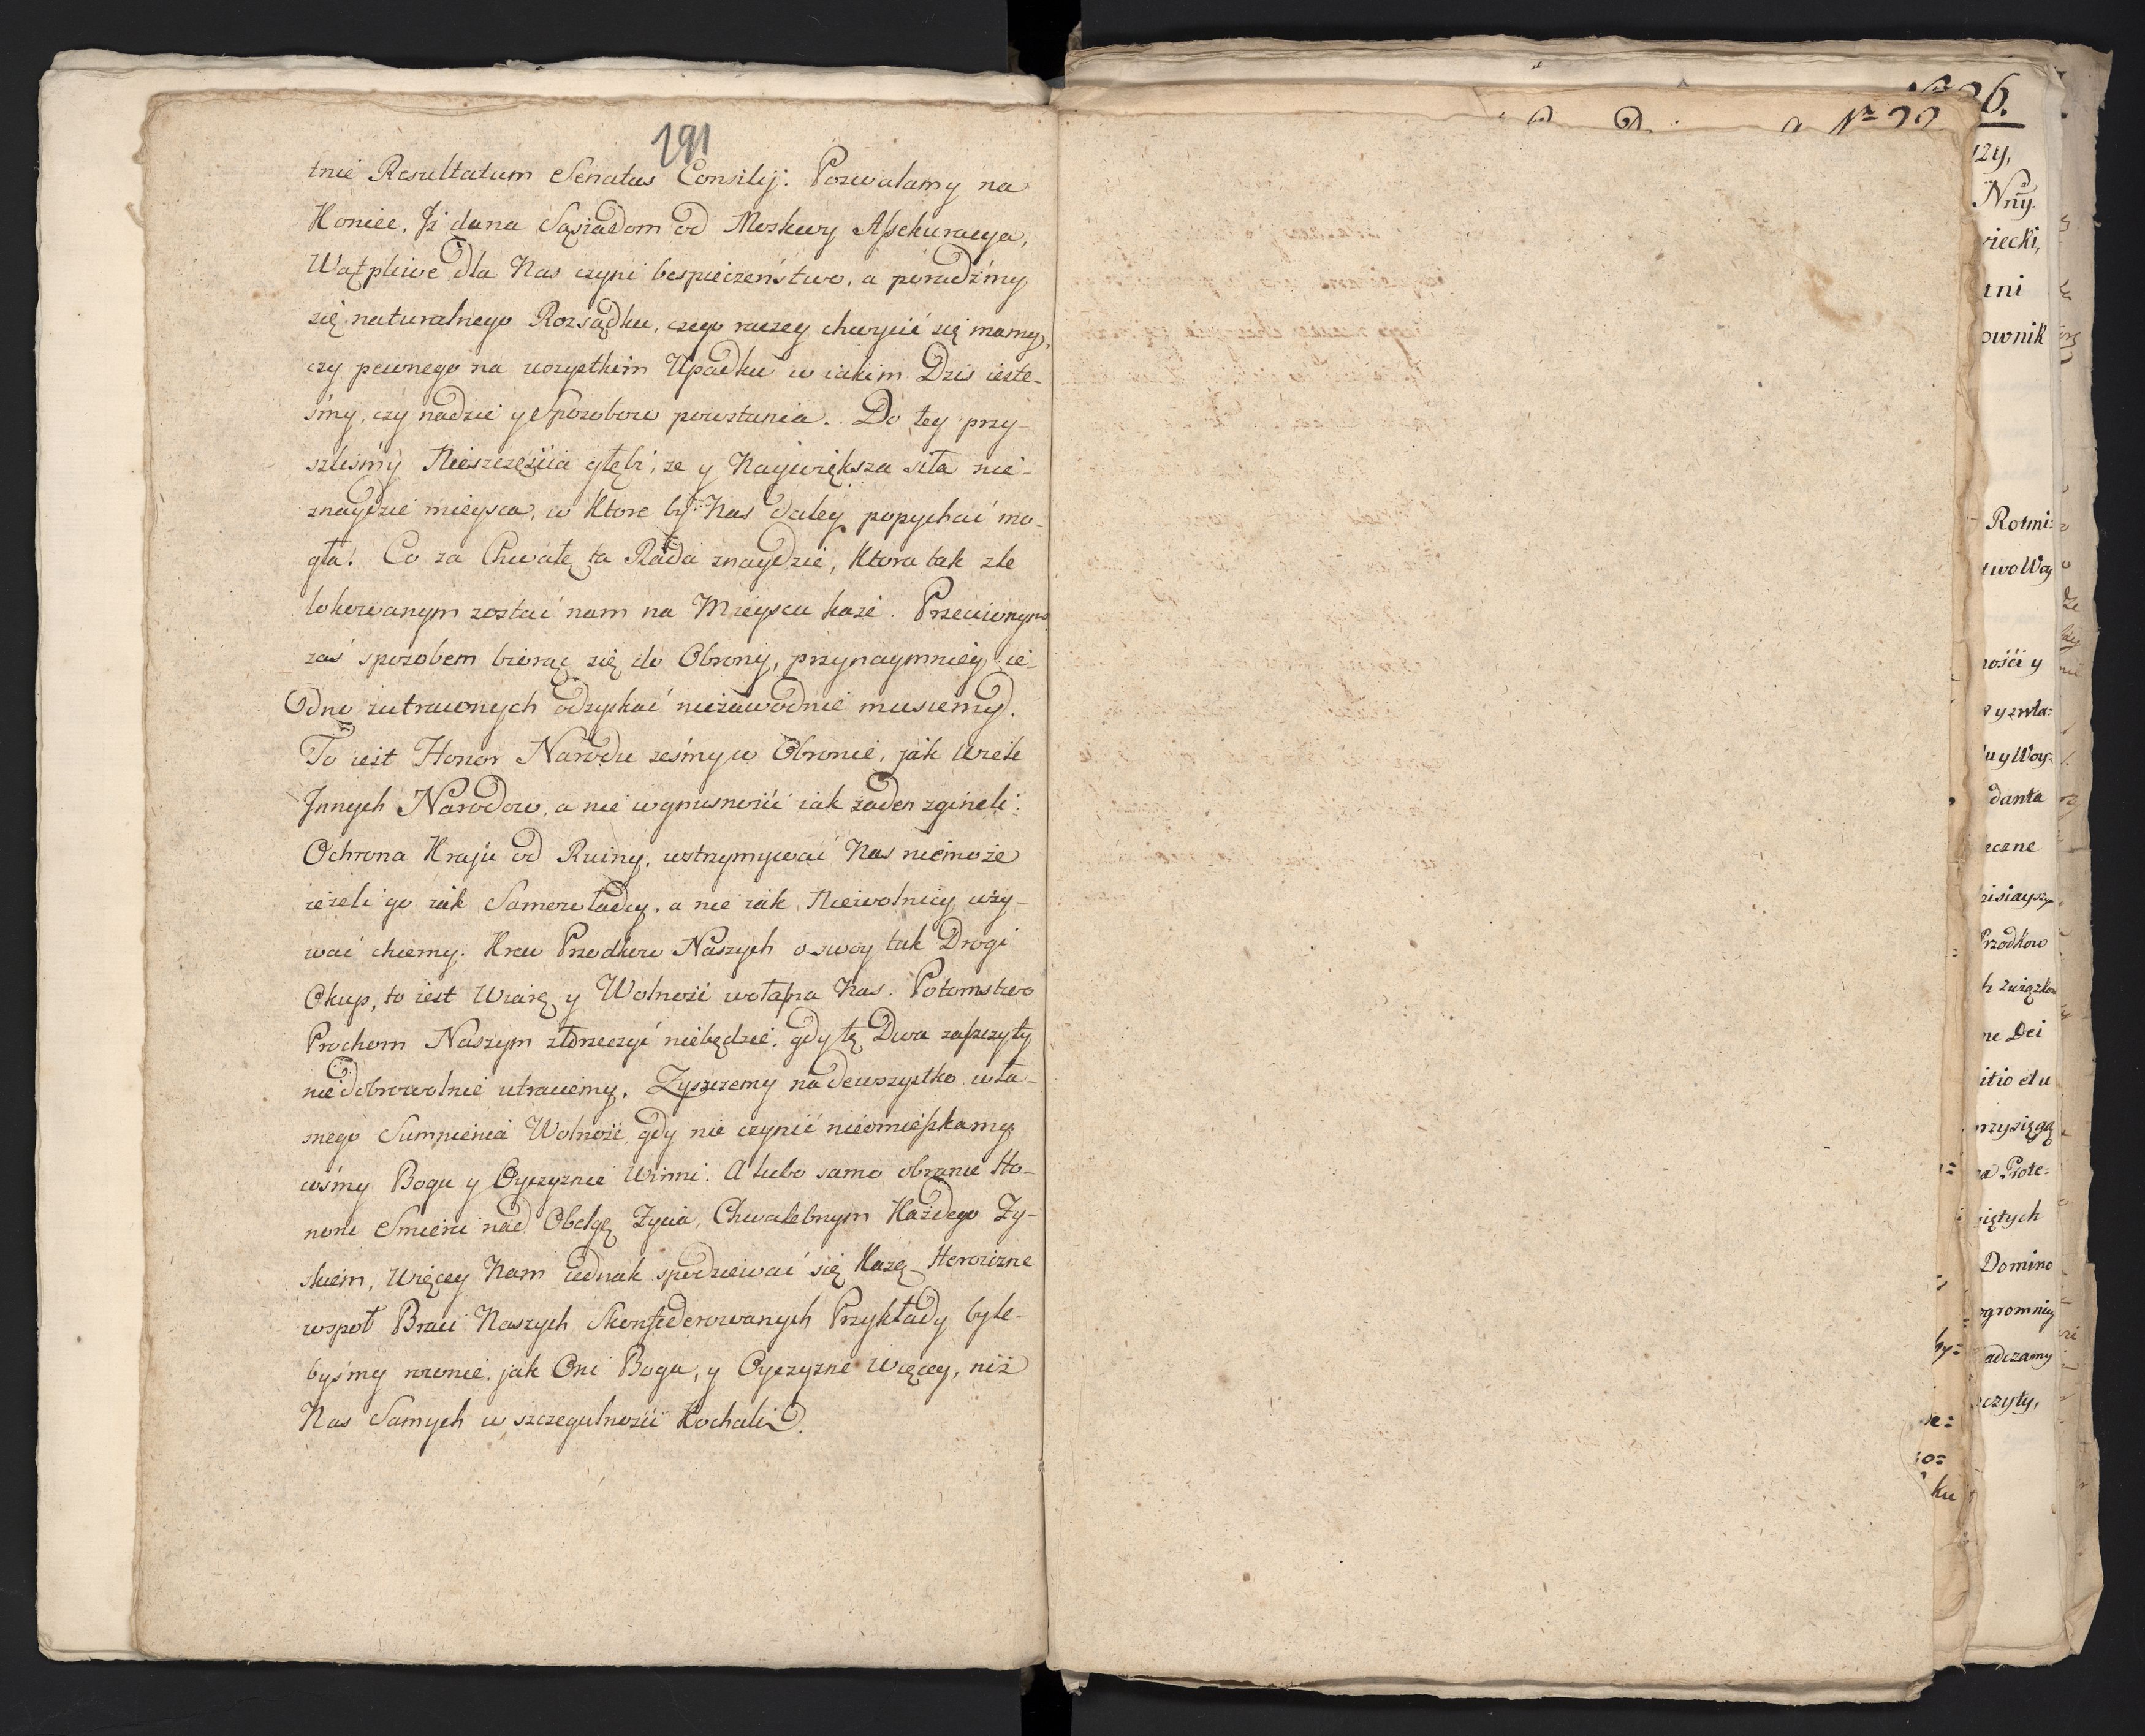 191
tnie Resultatum Senatus Consilij: Pozwalamy na
Koniec, Jż dana Sąsiadom od Moskwy Assekuracya,
Wątpliwe dla Nas czyni bespieczeństwo, a poradźmy
się naturalnego Rozsądku, czego raczey chwycić się mamy,
czy pewnego na wszystkim Upadku w iakim Dzis ieste-
śmy, czy nadzei y Sposobow powstania. Do tey przy-
szliśmy Nieszczęścia głębi, ze y Naywiększa siła nie-
znaydzie mieysca, w Ktore by Nas daley popychać mo-
gła! Co za Chwałę ta Rada znaydzie, Ktora tak zle
lokowanym zostać nam na Mieyscu każe. Przeciwnym
zaś sposobem biorąc się do Obrony, przynaymniey ie-
dno z utraconych odzyskać niezawodnie musiemy.
To iest Honor Narodu ześmy w Obronie, jak wiele
Jnnych Narodow, a nie w gnusności iak żaden zgineli:
Ochrona Kraju od Ruiny, wstrzymywać Nas niemoże
ieżeli go iak Samowładcy, a nie iak Niewolnicy uży-
wać chcemy. Krew Przodkow Naszych o swoy tak Drogi
Okup, to iest Wiarę y Wolność woła na Nas. Potomstwo
Prochom Naszym złorzeczyć niebędzie, gdy tę Dwa zaszczyty
niedobrowolnie utraciemy. Zyszczemy nadewszystko wła-
snego Sumnienia Wolność, gdy nie czynić nieomieszkamy
cośmy Bogu y Oyczyznie Winni. A lubo samo obranie Ho-
noru Smierci nad Obelgę Zycia, Chwalebnym Każdego Zy-
skiem, Więcey Nam iednak spodziewać się Każą Heroiczne
wspoł Braci Naszych Skonfederowanych Przykłady byle-
byśmy rownie, jak Oni Boga, y Oyczyzne Więcey, niż
Nas Samych w szczegulności Kochali.
Nr 22
26.
rzy,
Nrny.
wiecki,
tni
ownik
Rotmi:
two Way
ności y
wyzwla:
u y Woy:
danta
eczne
zisiaysz
Przodkow
h związkow
ne Dei
itio et u
przysięgą
a Prote:
iętych
Domino
ogromniy
adczamy
czyty,
by:
ie:
io:
ku